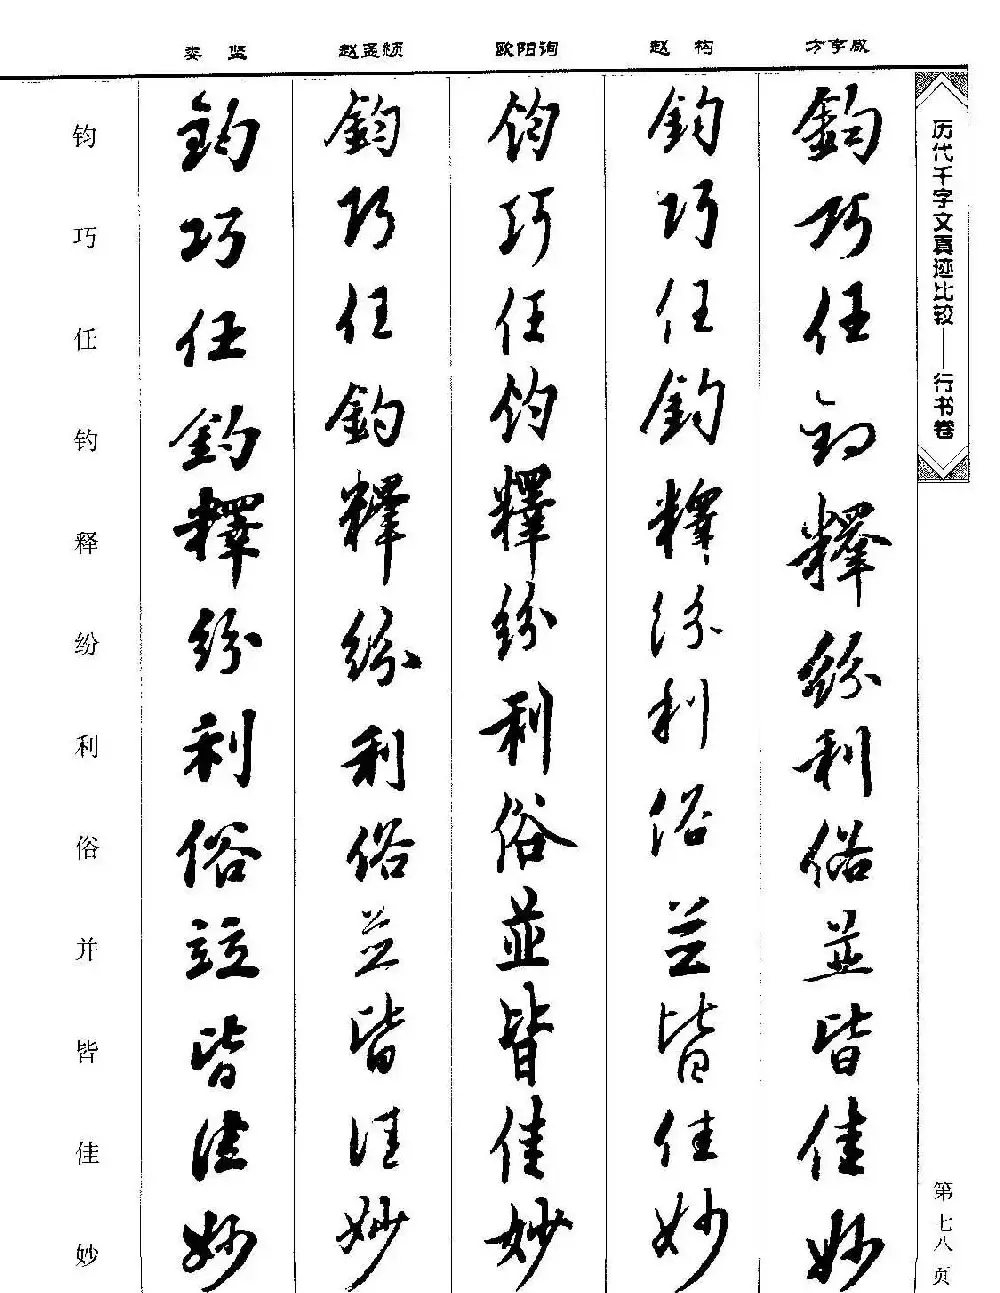 历代千字文真迹比较——行书卷
第七八页
方亨咸
鈞巧任釣釋紛利俗並皆佳妙
赵构
鈞巧任釣釋紛利俗並皆佳妙
欧阳询
鈞巧任釣釋紛利俗並皆佳妙
赵孟頫
鈞巧任釣釋紛利俗並皆佳妙
娄坚
鈞巧任釣釋紛利俗竝皆佳妙
钧巧任钓释纷利俗并皆佳妙